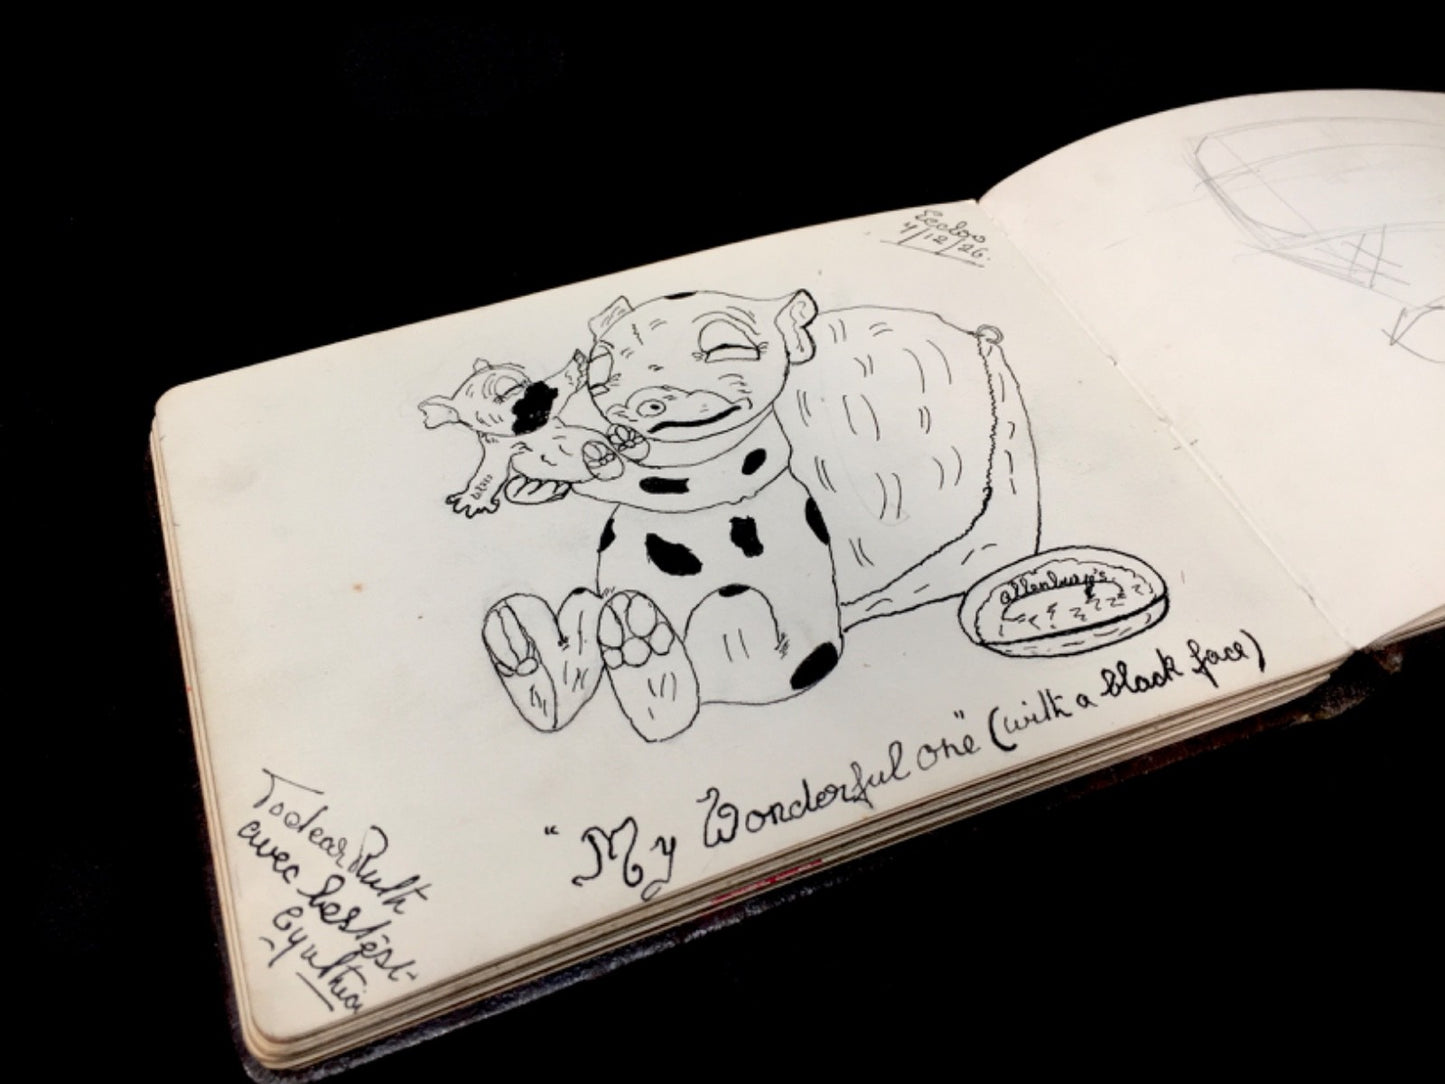 Eecloo
4/12/26.
allenburg's
"My Wonderful one" (with a black face)
To dear Ruth
avec bestest
Cynthia